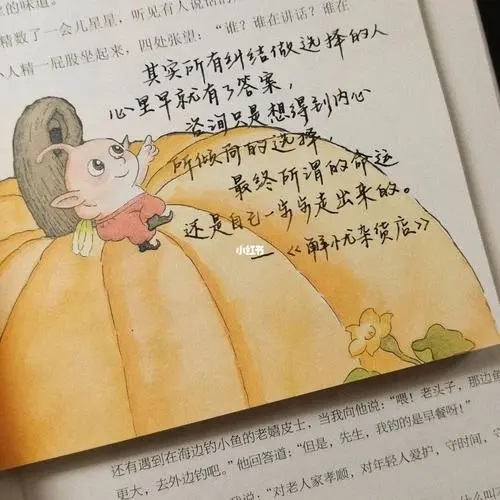 的味道。
精数了一会儿星星，听见有人说话的
小人精一屁股坐起来，四处张望：“谁？谁在讲话？谁在
其实所有纠结做选择的人
心里早就有了答案，
咨询只是想得到内心
所倾向的选择，
最终所谓的命运
还是自己一步步走出来的。
—《解忧杂货店》
小红书
还有遇到在海边钓小鱼的老嬉皮士，当我向他说：“喂！老头子，那边鱼
更大，去外边钓吧。”他回答道：“但是，先生，我钓的是早餐呀！”
我告诉说：“对老人家孝顺，对年轻人爱护，守时间，守